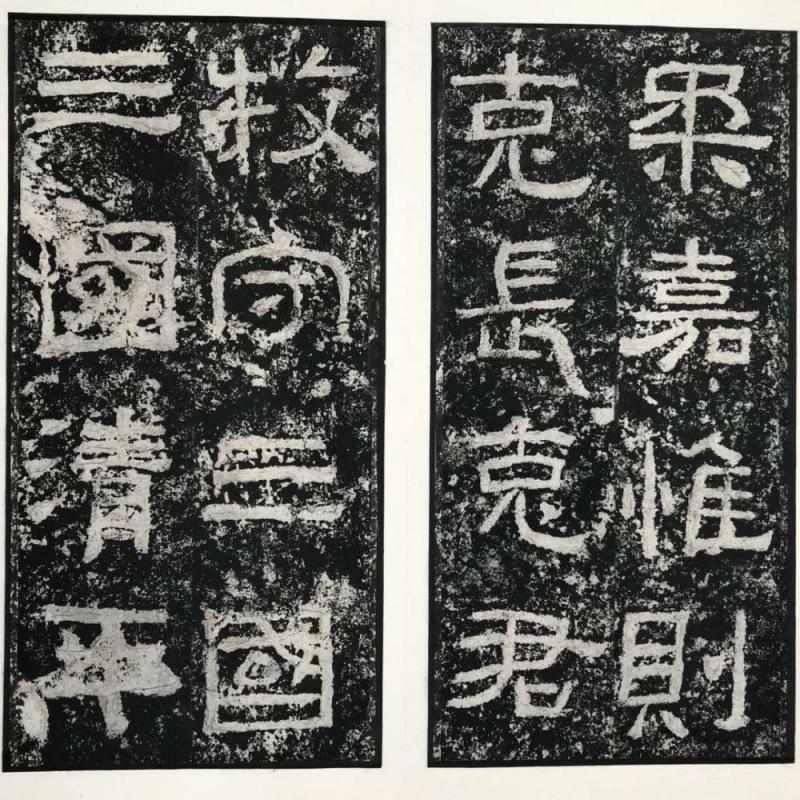 柔嘉惟則
克長克君
牧守三國
三國清平